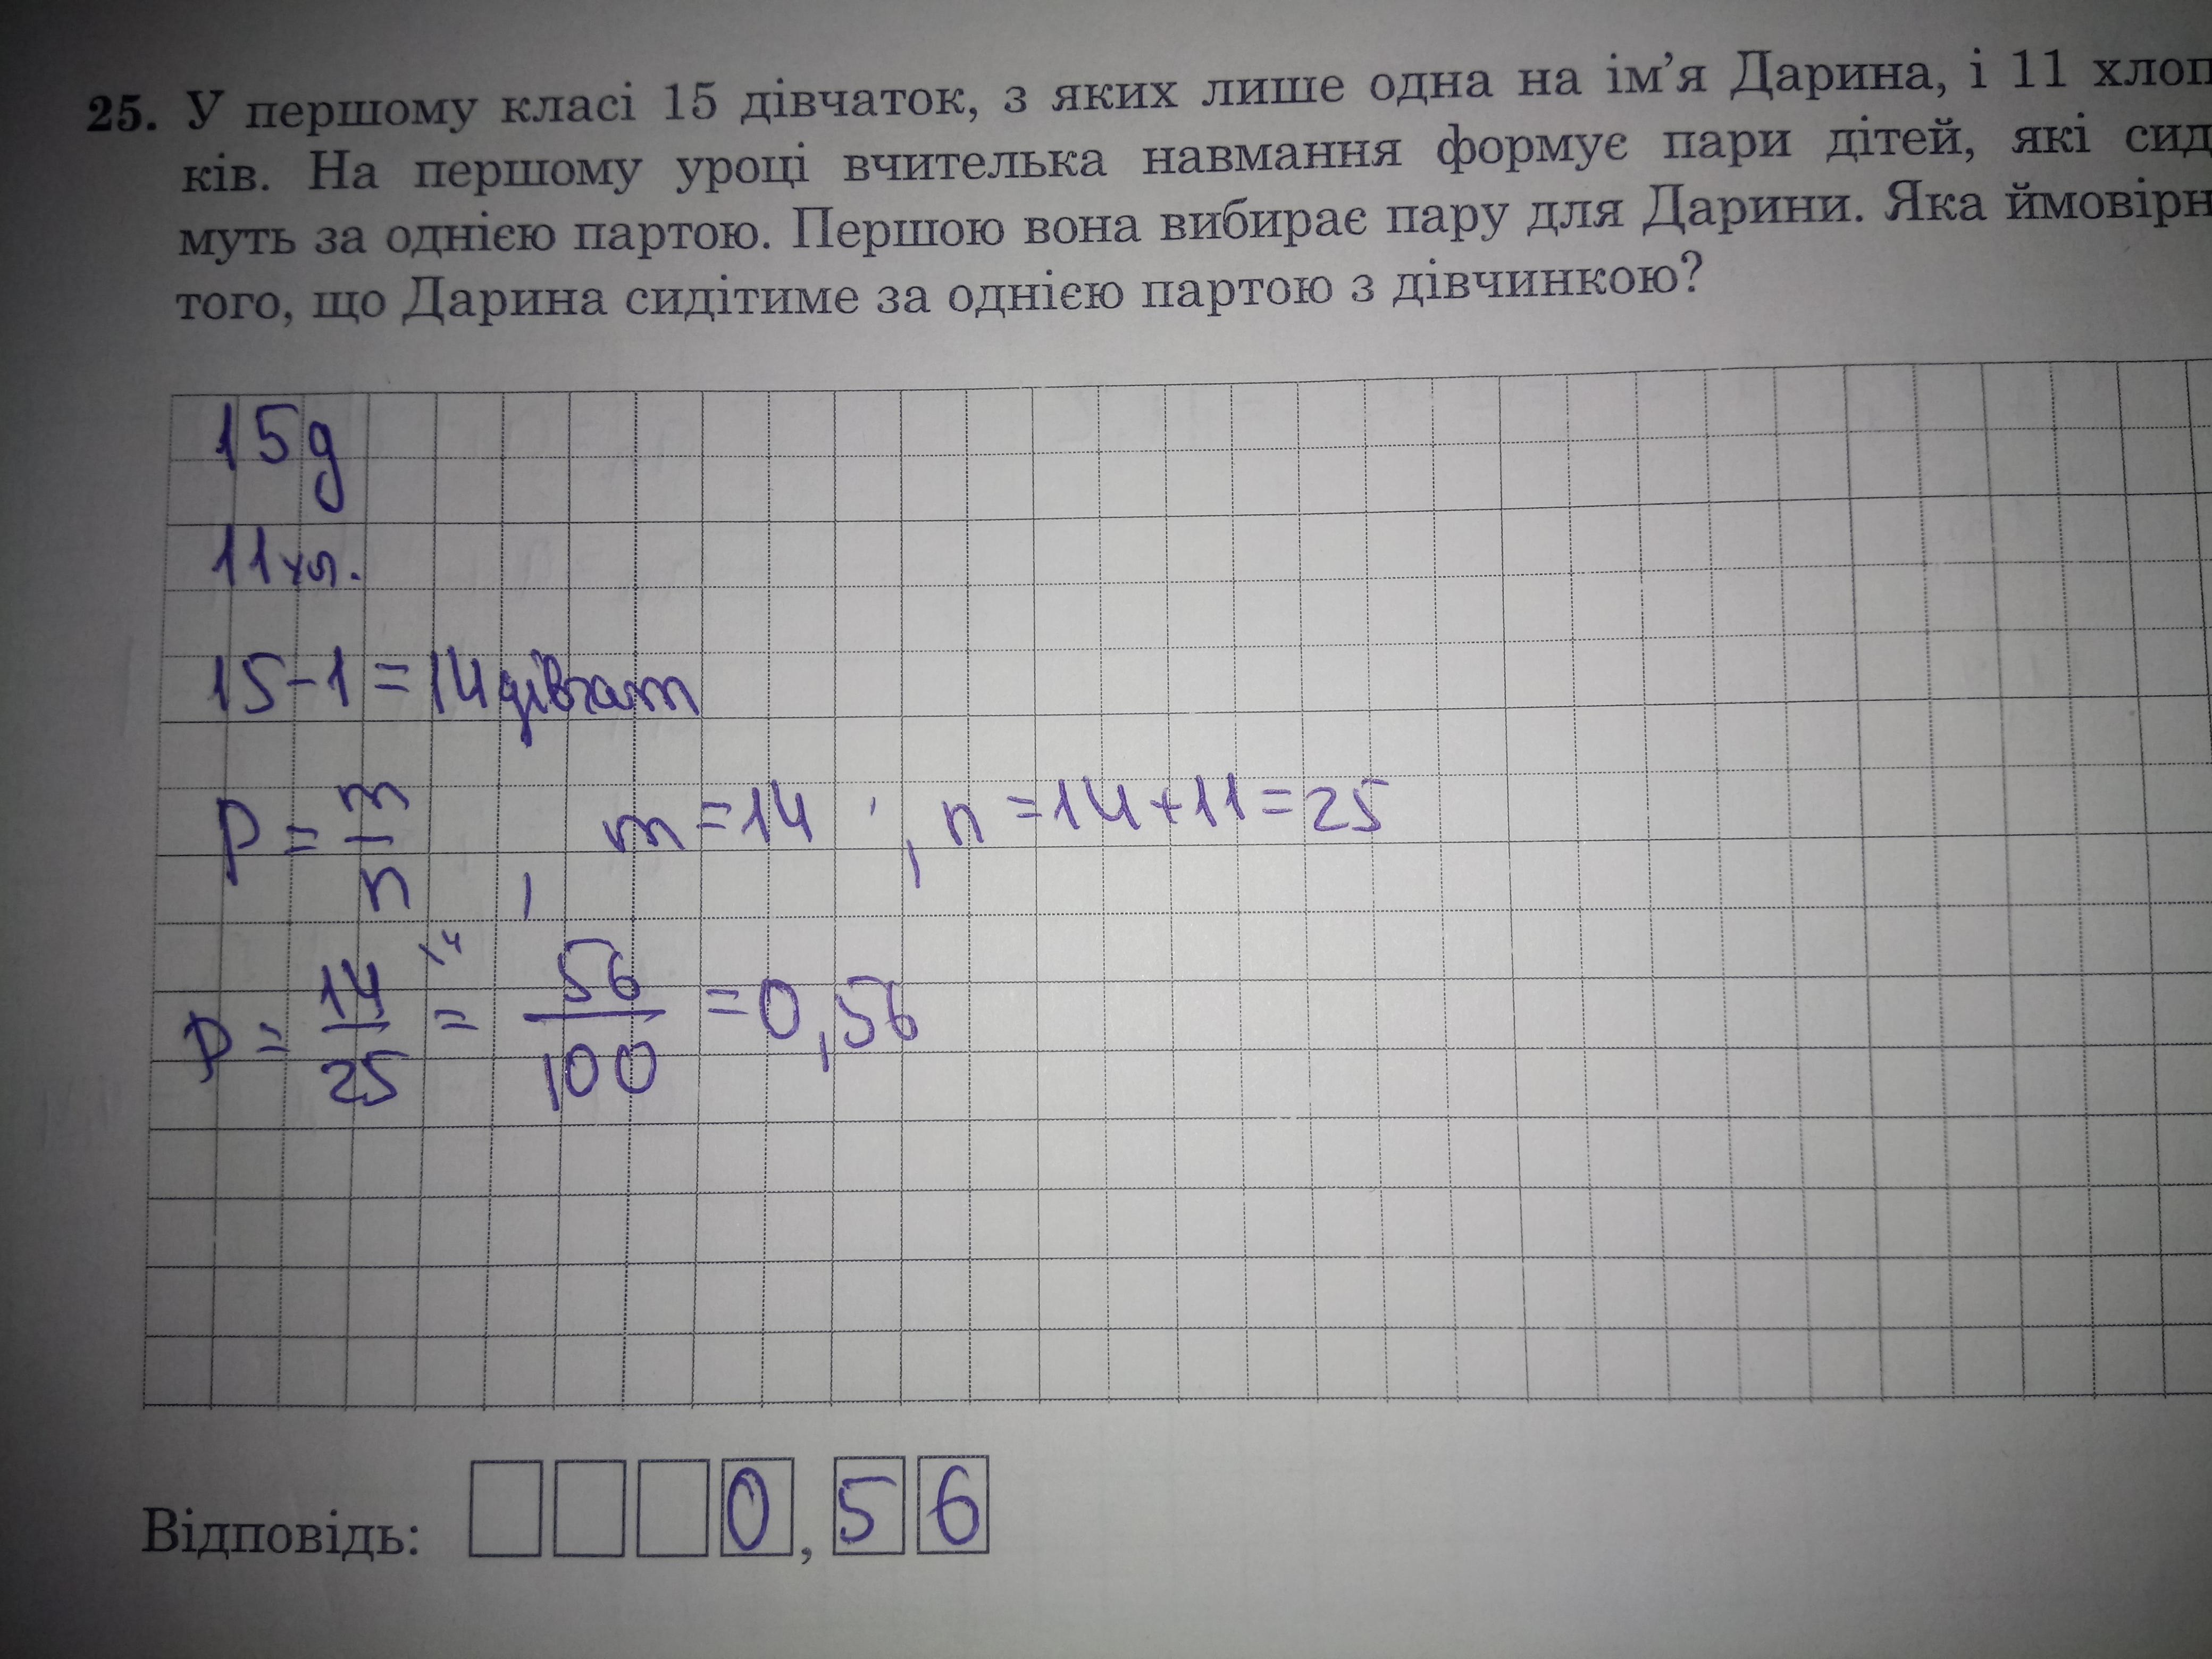 25. У першому класі 15 дівчаток, з яких лише одна на ім’я Дарина, і 11 хлоп
ків. На першому уроці вчителька навмання формує пари дітей, які сид
муть за однією партою. Першою вона вибирає пару для Дарини. Яка ймовірн
того, що Дарина сидітиме за однією партою з дівчинкою?
15д
11хл.
15-1=14дівчат
P = m/n , m=14 , n=14+11=25
P = 14/25 \4 = 56/100 =0,56
Відповідь: 0,56